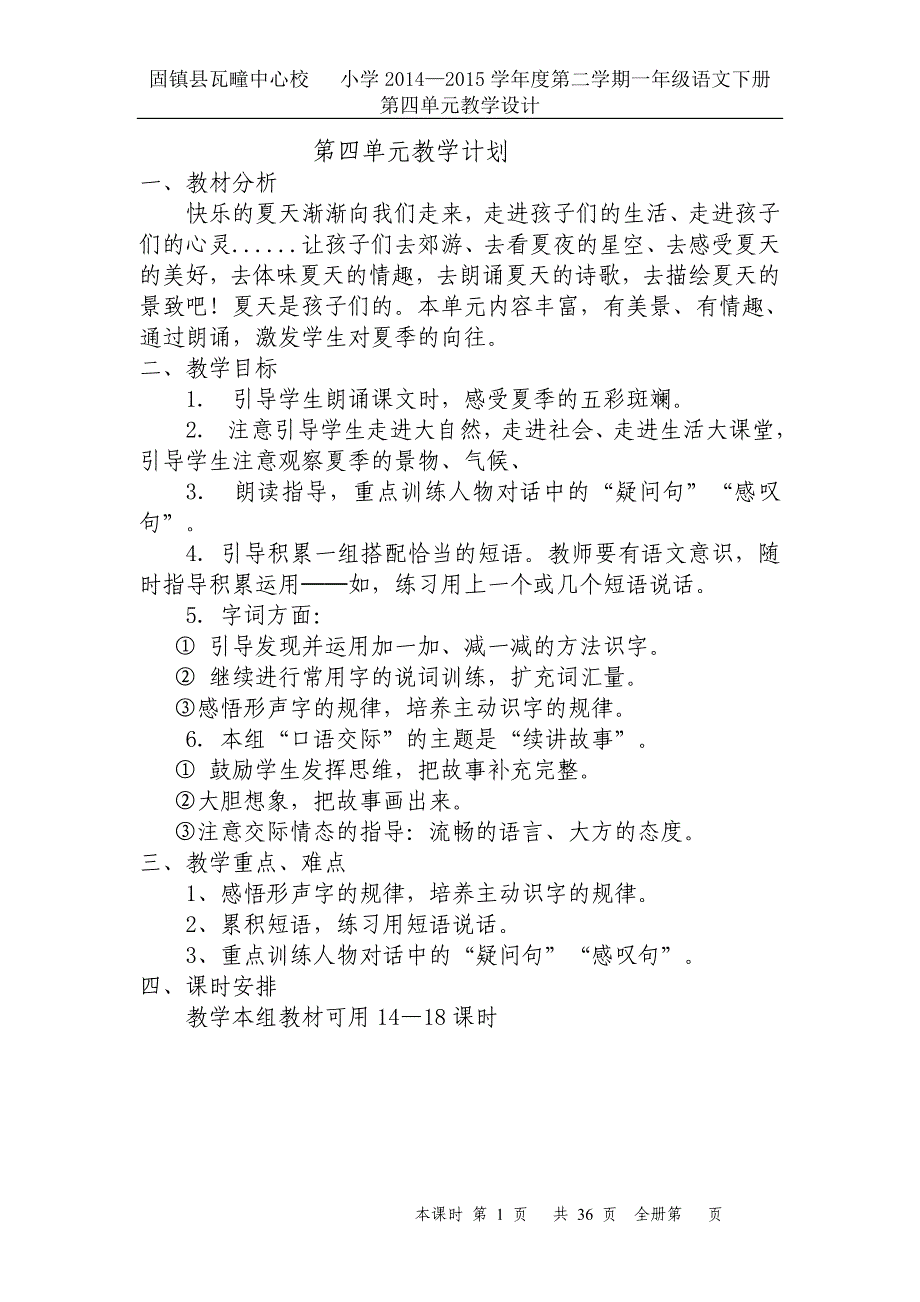 固镇县瓦疃中心校 小学 2014—2015 学年度第二学期一年级语文下册
第四单元教学设计
第四单元教学计划
一、教材分析
快乐的夏天渐渐向我们走来，走进孩子们的生活、走进孩子
们的心灵......让孩子们去郊游、去看夏夜的星空、去感受夏天
的美好，去体味夏天的情趣，去朗诵夏天的诗歌，去描绘夏天的
景致吧！夏天是孩子们的。本单元内容丰富，有美景、有情趣、
通过朗诵，激发学生对夏季的向往。
二、教学目标
1. 引导学生朗诵课文时，感受夏季的五彩斑斓。
2. 注意引导学生走进大自然，走进社会、走进生活大课堂，
引导学生注意观察夏季的景物、气候、
3. 朗读指导，重点训练人物对话中的“疑问句”“感叹
句”。
4. 引导积累一组搭配恰当的短语。教师要有语文意识，随
时指导积累运用——如，练习用上一个或几个短语说话。
5. 字词方面：
① 引导发现并运用加一加、减一减的方法识字。
② 继续进行常用字的说词训练，扩充词汇量。
③感悟形声字的规律，培养主动识字的规律。
6. 本组“口语交际”的主题是“续讲故事”。
① 鼓励学生发挥思维，把故事补充完整。
②大胆想象，把故事画出来。
③注意交际情态的指导：流畅的语言、大方的态度。
三、教学重点、难点
1、感悟形声字的规律，培养主动识字的规律。
2、累积短语，练习用短语说话。
3、重点训练人物对话中的“疑问句”“感叹句”。
四、课时安排
教学本组教材可用 14—18 课时
本课时 第 1 页 共 36 页 全册第 页